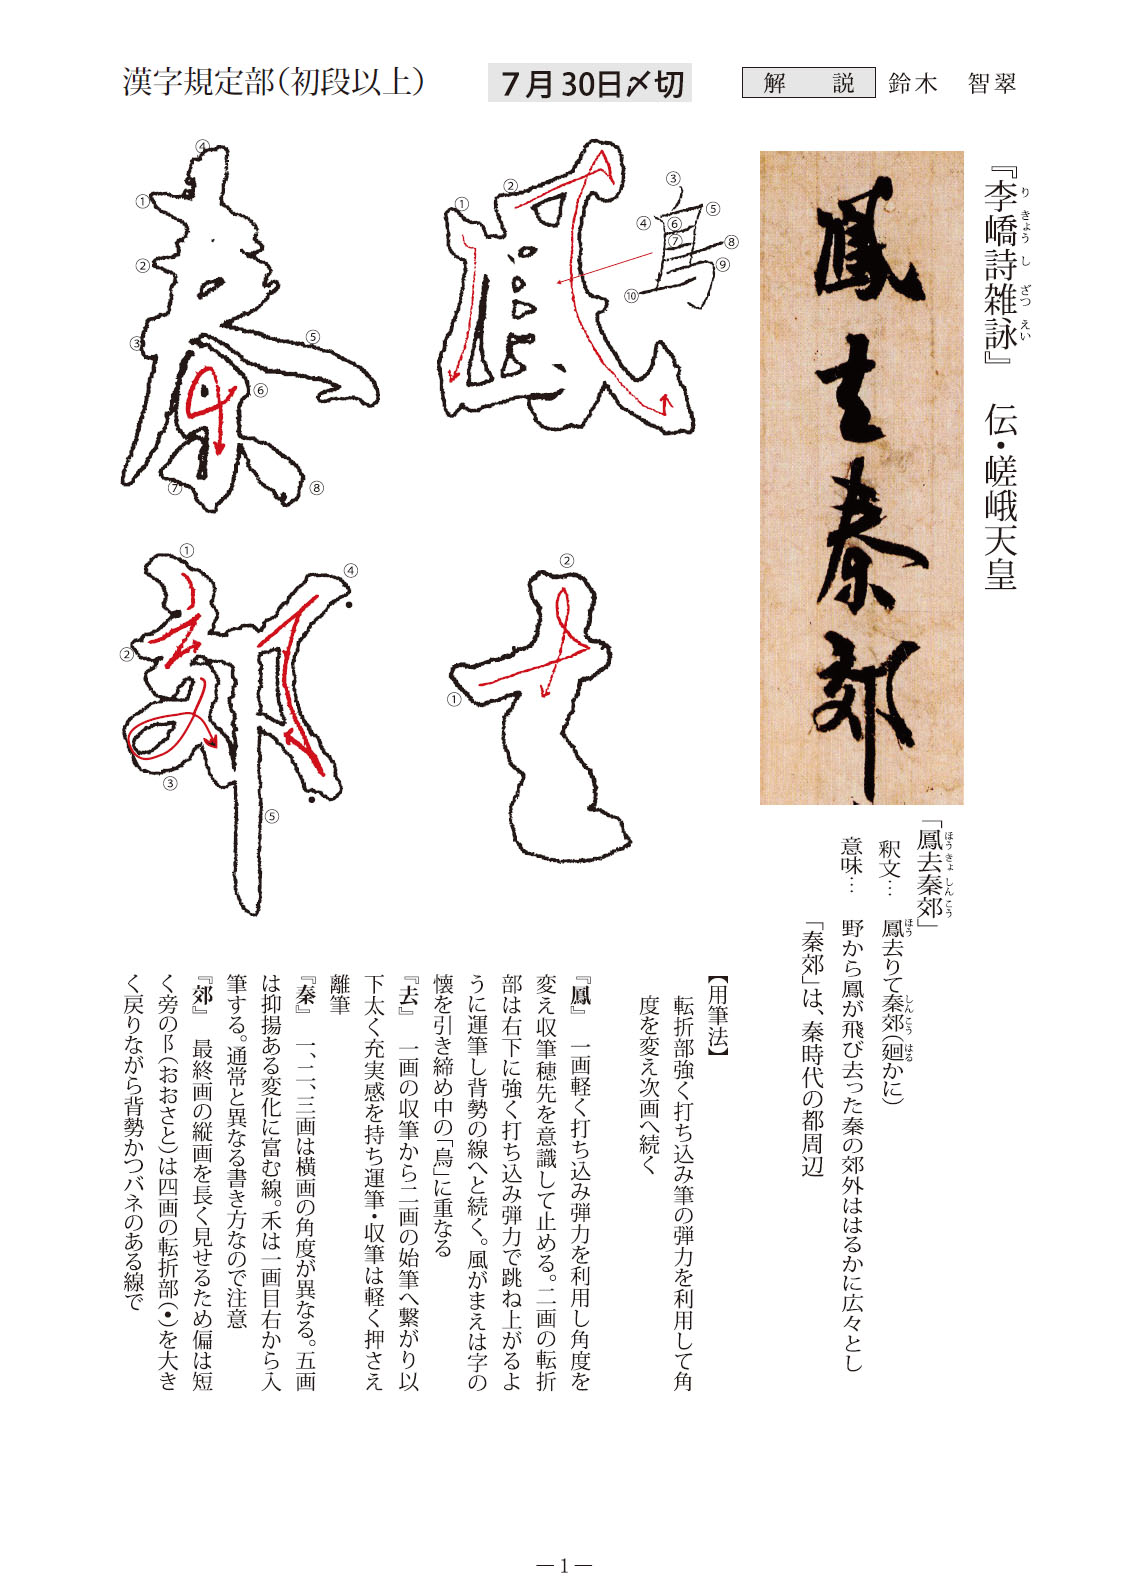 漢字規定部（初段以上）
７月30日〆切
解　説　鈴木　智翠
『李嶠詩雑詠』　伝・嵯峨天皇
りきょうしざつえい
鳳去秦郊
「鳳去秦郊」
ほうきょしんこう
釈文…　鳳去りて秦郊（廻かに）
ほう　しんこう　はる
意味…　野から鳳が飛び去った秦の郊外ははるかに広々とし
「秦郊」は、秦時代の都周辺
① ② ③ ④ ⑤ ⑥ ⑦ ⑧ ⑨ ⑩
鳥
② ①
④ ① ② ③ ⑤ ⑥ ⑦ ⑧
① ④ ② ③ ⑤
【用筆法】
転折部強く打ち込み筆の弾力を利用して角
度を変え次画へ続く
『鳳』　一画軽く打ち込み弾力を利用し角度を
変え収筆穂先を意識して止める。二画の転折
部は右下に強く打ち込み弾力で跳ね上がるよ
うに運筆し背勢の線へと続く。風がまえは字の
懐を引き締め中の「鳥」に重なる
『去』　一画の収筆から二画の始筆へ繋がり以
下太く充実感を持ち運筆・収筆は軽く押さえ
離筆
『秦』　一、二、三画は横画の角度が異なる。五画
は抑揚ある変化に富む線。禾は一画目右から入
筆する。通常と異なる書き方なので注意
『郊』　最終画の縦画を長く見せるため偏は短
く旁の阝（おおさと）は四画の転折部（•）を大き
く戻りながら背勢かつバネのある線で
― 1 ―